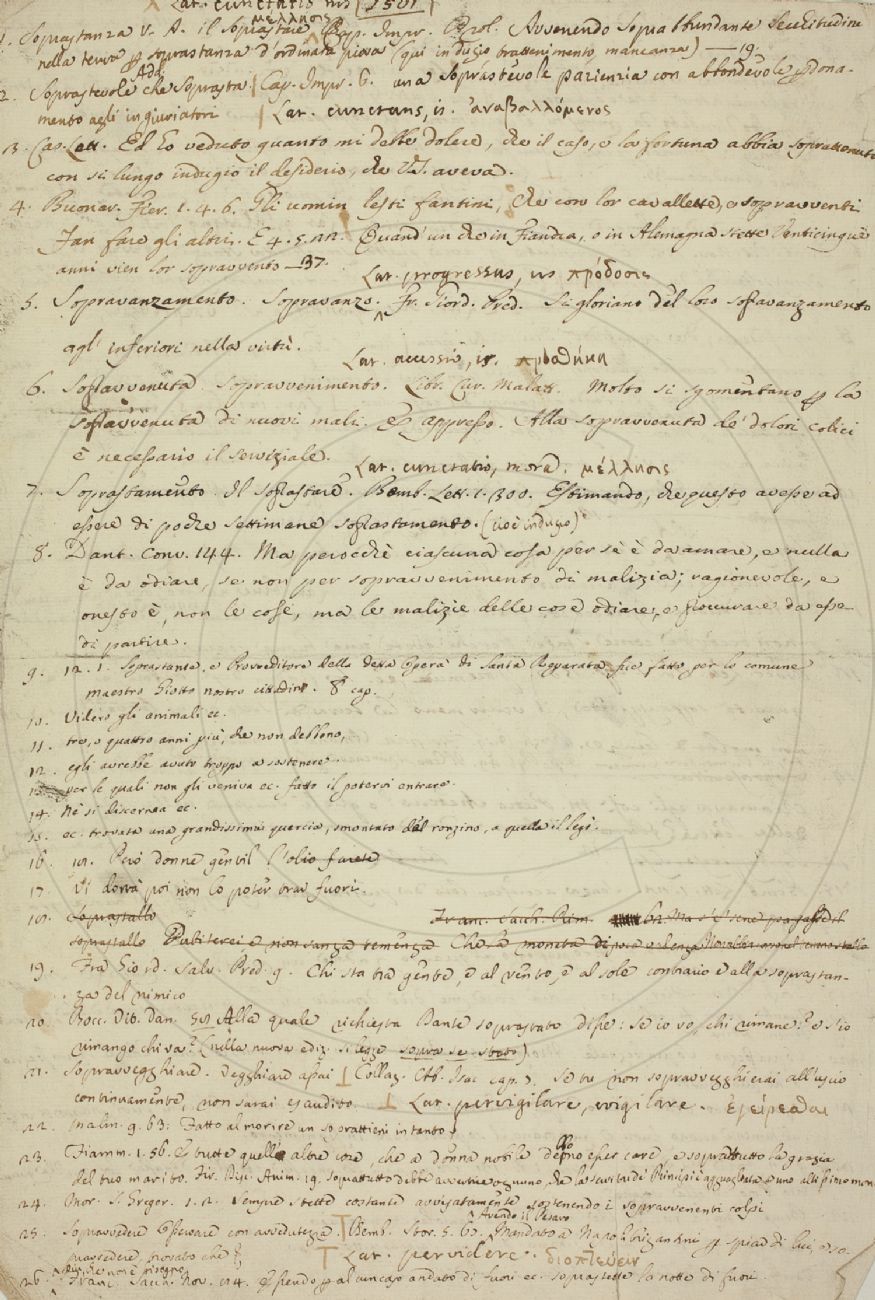 Lat. cunctatio ms 1501
μέλλησις
1. Soprastanza V. A. il soprastare Cap. Impr. Prol. Avvenendo soprabbundante seccitudine
nella terra p soprastanza d'ordinata piova (qui indugio trattenimento, mancanza) — 19.
2. Soprastevole Add. che soprasta Cap. Impr. 6. una soprastevole pazienzia con abbondevole pdona-
mento agli ingiuriatori Lat. cunctans, is. ἀναβαλλόμενος
3. Cas. Lett. Ed ho veduto quanto mi debbe dolere, che il caso, e la fortuna abbia soprattenuto
con sì lungo indugio il desiderio, che V.S. aveva.
4. Buonar. Fier. 1. 4. 6. Gli uomin lesti fantini, che con lor cavallette, e sopravventi
Fan fare gli altri. E 4. 5. Quand' un che in Fiandra, o in Alemagna stette Venticinque
anni vien lor sopravvento — 37.
Lat. progressus, us πρόδοσις
5. Sopravanzamento. Sopravanzo. Fr. Giord. Pred. Si gloriano del loro sopravanzamento
agl' inferiori nella virtù.
Lat. accessio, is. προσθήκη
6. Sopravvenuta. sopravvenimento. Libr. Cur. Malatt. Molto si sgomentano p la
sopravvenuta di nuovi mali. E appresso. Alla sopravvenuta de' dolori colici
è necessario il serviziale.
Lat. cunctatio, mora. μέλλησις
7. Soprastamento. Il soprastare. Bemb. Lett. 1. 300. Estimando, che questo avesse ad
essere di poche settimane soprastamento. (cioè indugio)
8. Dant. Conv. 144. Ma perocchè ciascuna cosa per sè è da amare, e nulla
è da odiare, se non per sopravvenimento di malizia; ragionevole, e
onesto è, non le cose, ma le malizie delle cose odiare, e procurare da esse
di partire.
9. 12. 1. Soprastante, e Provveditore della detta Opera di Santa Reparata fue fatto per lo comune
maestro Giotto nostro cittadino. 8 cap.
10. Videro gli animali ec.
11. tre, o quattro anni più, che non debbono,
12. egli avrebbe avuto troppo a sostenere.
13. per le quali non gli veniva ec. fatto il potervi entrare.
14. Nè si discernea ec.
15. ec. trovata una grandissima quercia, smontato del ronzino, a quella il legò.
16. Può donne gentil l'olio farete
17. Vi dorrà poi non lo poter trar fuori.
18. Soprastallo Franc. Sacch. Rim.
soprastallo Dubiterei e non sanza temenza Che è moneta di poca valenza
19. Fra Giord. Salv. Pred. 9. Chi sta tra gente, è al vento, è al sole contrario e alla soprastan-
za del nimico
20. Bocc. Vit. Dan. 58 Alla quale richiesta Dante soprastato disse: se io vo, chi rimane? e s'io
rimango chi va? (nella nuova ediz. si legge sopra se stato)
21. Sopravvegghiare. Vegghiare assai Collaz. Ab. Isac cap. 7. se tu non sopravvegghierai all'uscio
continuamente, non sarai esaudito. Lat. pervigilare, evigilare. ἐγείρεσθαι
22. Malm. 9. 63: Fatto al morire un soprattieni intanto.
23. Fiamm. 1. 56. E tutte quelle altre cose, che a donna nobile debbono esser care, e soprattutto la grazia
del tuo marito.
24. Mor. S. Gregor. 1. 2. Sempre stette costante avvisatamente sostenendo i sopravvenenti colpi
25. Sopravvedere Osservare con avvedutezza Bemb. Stor. 5. 60. Avendo il Pesaro Mandato a Napoli brigantini p spiar di lui, e so-
pravvedere, trovato che
Lat. pervidere. διοπτεύειν
26. Franc. Sacch. Nov. 114. Essendo p alcun caso andato di fuori ec. soprastette la notte di fuori.